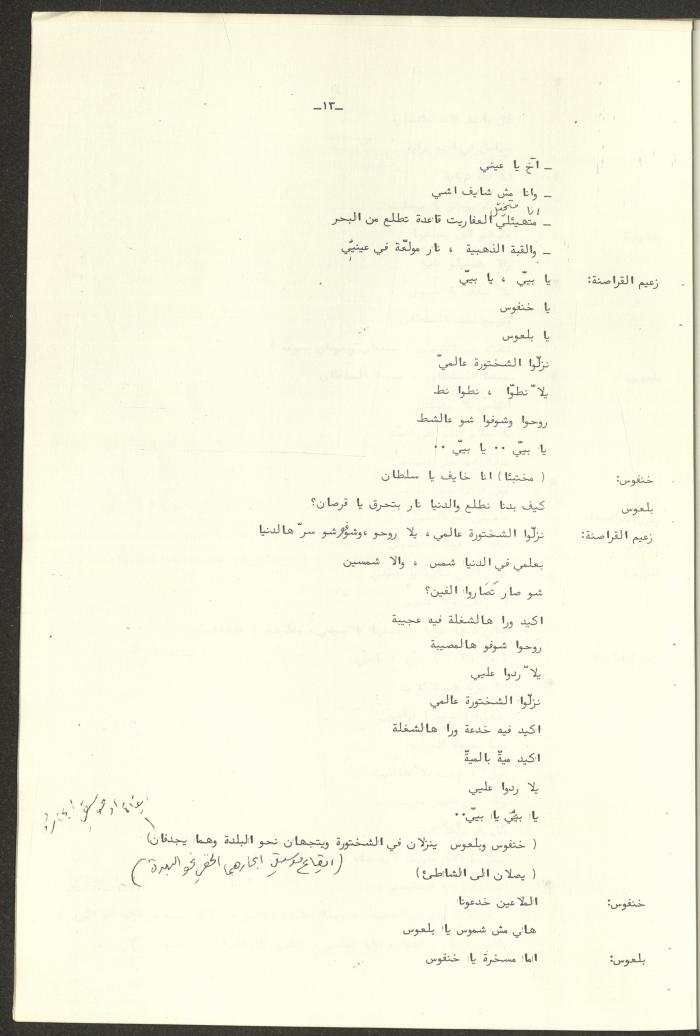 ـ١٣ـ
ـ آخ يا عيني
ـ وانا مش شايف اشي
انا متخيل
ـ متهيئليّ العفاريت قاعدة تطلع من البحر
ـ والقبة الذهبية ، نار مولعّة في عينييّ
زعيم القراصنة: يا بييّ ، يا بييّ
يا خنفوس
يا بلعوس
نزلّوا الشختورة عالميّ
يلا ّ نطوّا ، نطوا نط
روحوا وشوفوا شو عالشط
يا بييّ ٠٠ يا بييّ ٠٠
خنفوس: ( مختبئا) انا خايف يا سلطان
بلعوس كيف بدنا نطلع والدنيا نار بتحرق يا قرصان؟
زعيم القراصنة: نزلّوا الشختورة عالمي، يلا روحو ،وشوفو شو سرّ هالدنيا
بعلمي في الدنيا شمس ، والا شمسين
شو صار تَصَاروا الفين؟
اكيد ورا هالشغلة فيه عجيبة
روحوا شوفو هالمصيبة
يلا ّ ردوا علبي
نزلّوا الشختورة عالمي
اكيد فيه خدعة ورا هالشغلة
اكيد ميةّ بالميةّ
يلا ردوا علبي
يا بييّ يا بييّ٠٠
( خنفوس وبلعوس ينزلان في الشختورة ويتجهان نحو البلدة وهما يجدفان)
(ايقاع موسيقي ابحارهما نحو البلدة)
( يصلان الى الشاطئ)
خنفوس: الملاعين خدعونا
هاني مش شموس يا بلعوس
بلعوس: اما مسخرة يا خنفوس